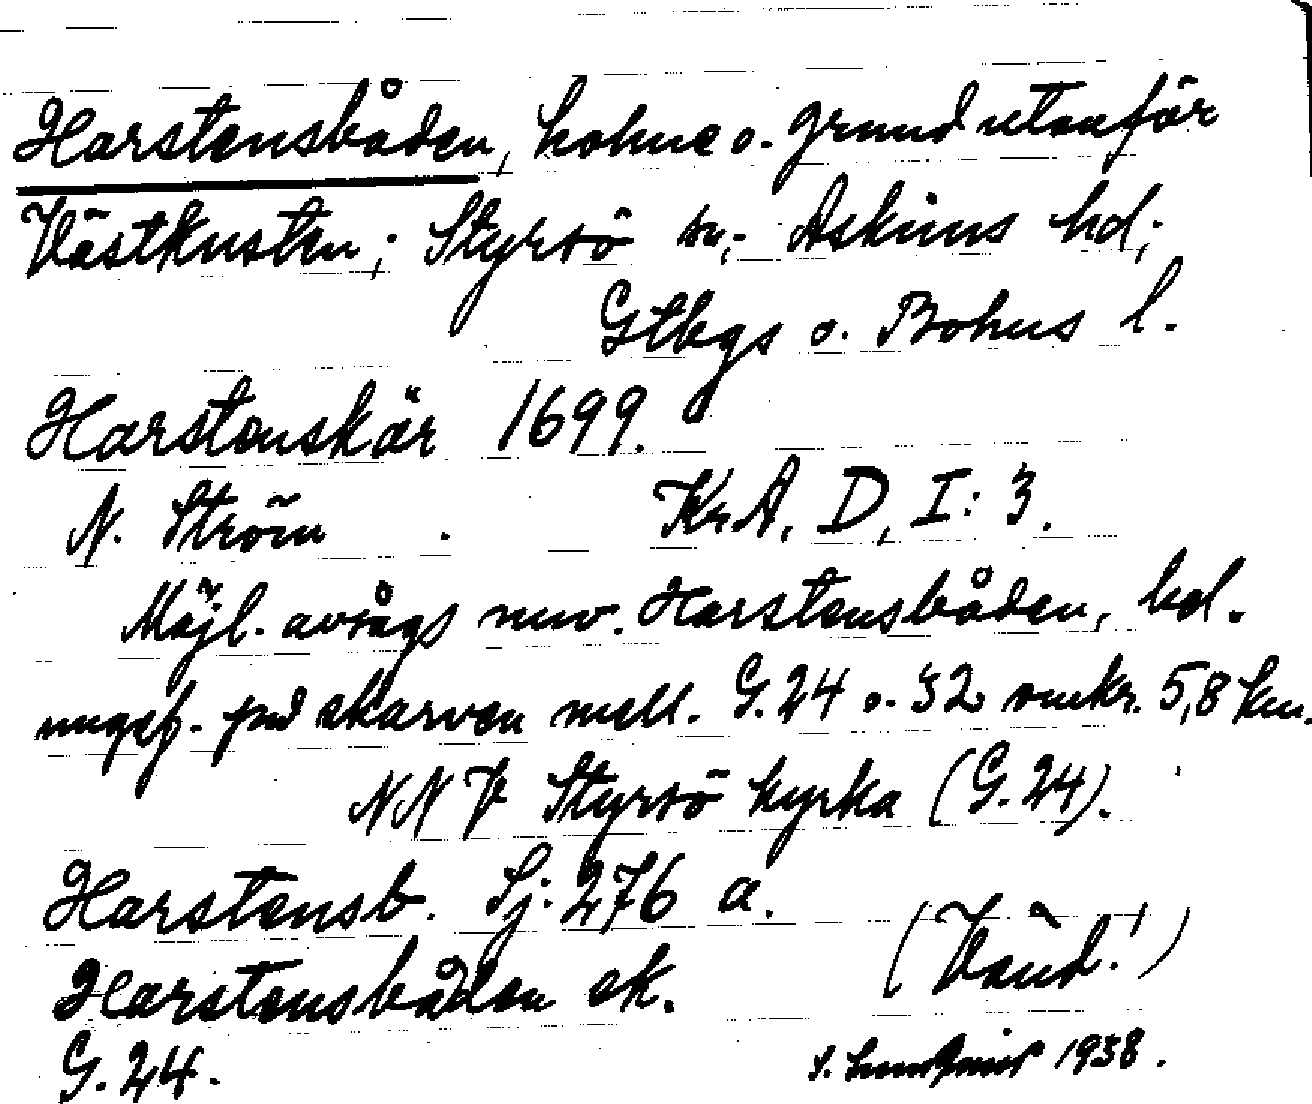 Harstensbåden, holme o. grund utanför
Västkusten; Styrsö sn; Askims hd;
Gtbgs o. Bohus l.
Harstenskär 1699.
N. Ström. Kr.A, D, I: 3.
Möjl. avsågs nuv. Harstensbåden, bel.
ungef. på skarven mell. G.24 o. 32 omkr. 5,8 km.
NNV Styrsö kyrka (G.24).
Harstensb. Sj: 276 a.
(Vänd!)
Harstensbåden ek.
G. 24.
1938.